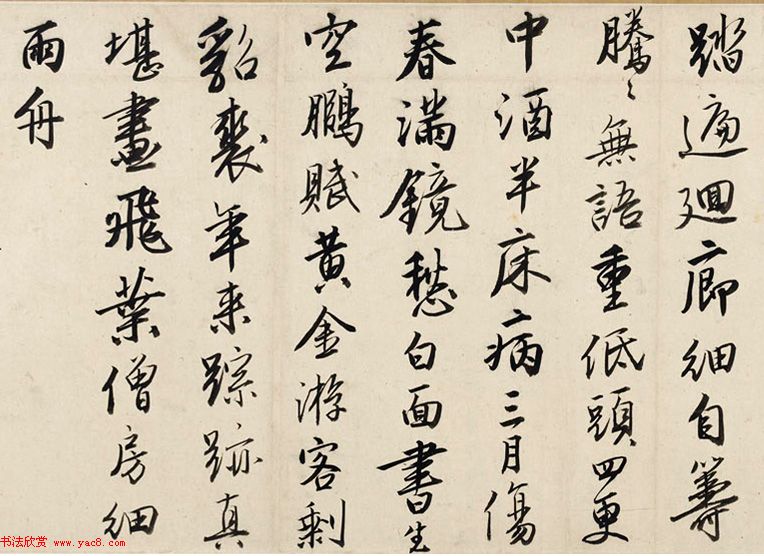 踏遍廻廊細自籌
騰〻無語重低頭四更
中酒半床病三月傷
春滿鏡愁白面書生
空鵬賦黃金游客剩
貂裘年來踪跡真
堪畫飛葉僧房細
雨舟
书法欣赏 www.yac8.com